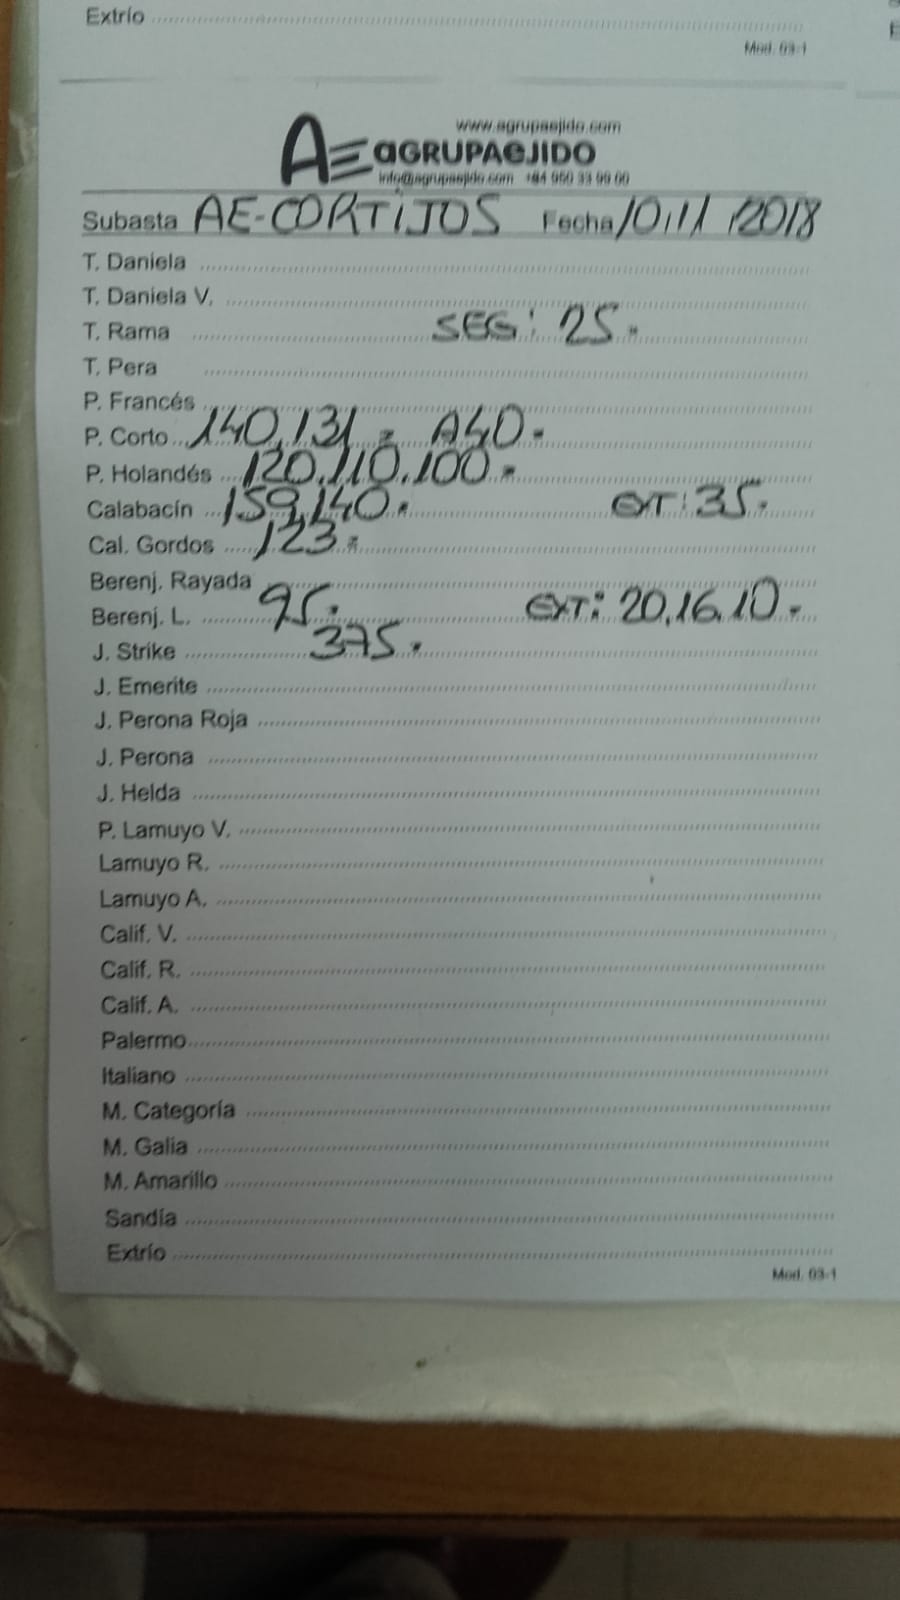 Extrío
Mod. 03-1
www.agrupaejido.com
AE aGRUPAeJIDO
info@agrupaejido.com +34 950 33 99 00
Subasta AE-CORTIJOS Fecha 10/11/2018
T. Daniela
T. Daniela V.
T. Rama SEG: 25.
T. Pera
P. Francés
P. Corto 140,131 = A40.
P. Holandés 120,110,100.
Calabacín 159,140. EXT: 35.
Cal. Gordos 123.
Berenj. Rayada
Berenj. L. 95. EXT: 20,16,10.
J. Strike 375.
J. Emerite
J. Perona Roja
J. Perona
J. Helda
P. Lamuyo V.
Lamuyo R.
Lamuyo A.
Calif. V.
Calif. R.
Calif. A.
Palermo
Italiano
M. Categoría
M. Galia
M. Amarillo
Sandía
Extrío
Mod. 03-1